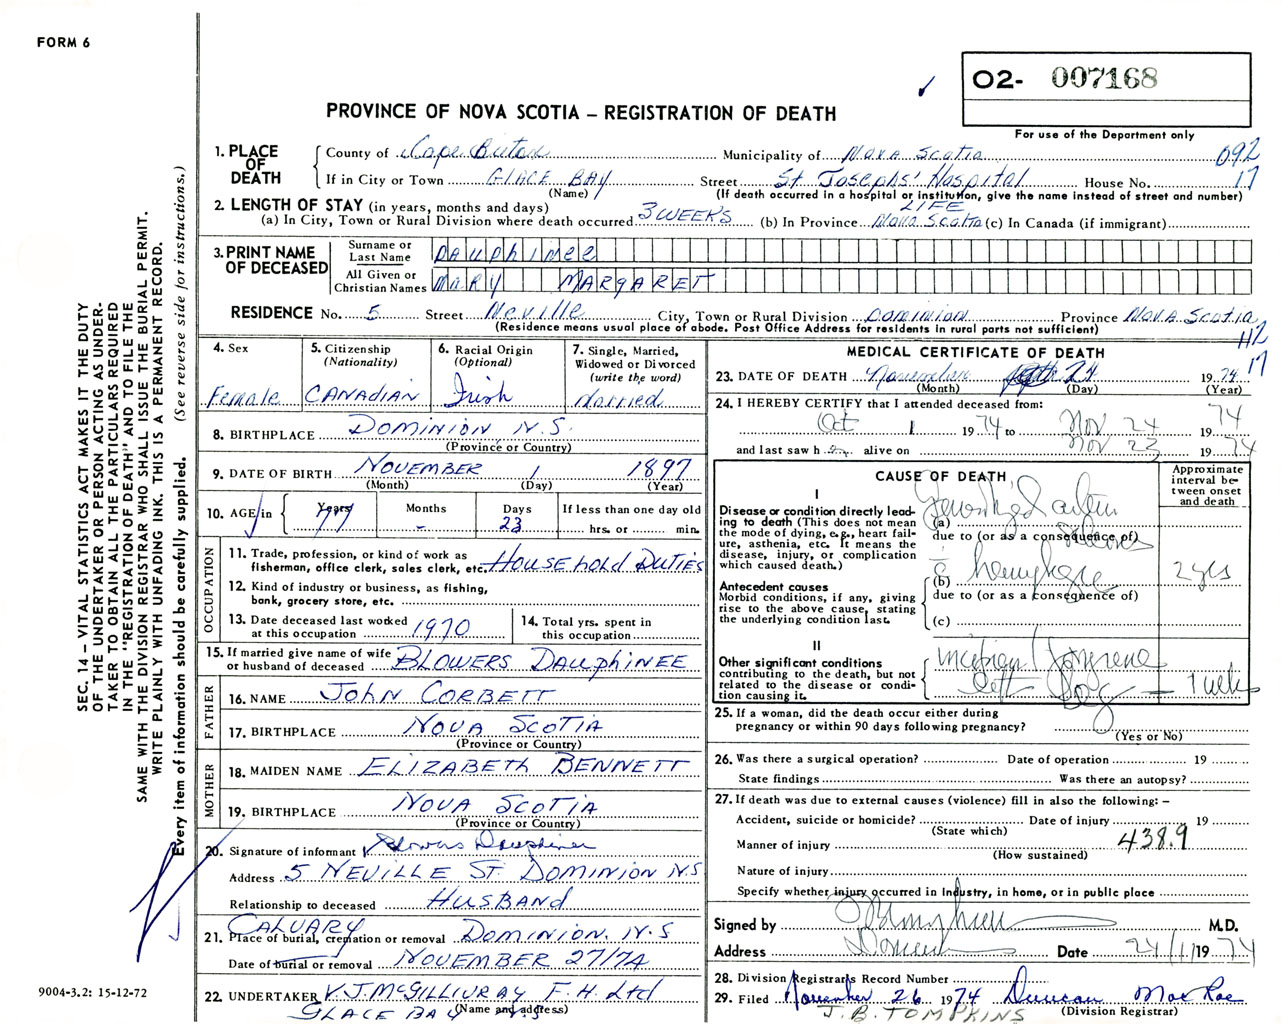 FORM 6
O2- 007168
For use of the Department only
PROVINCE OF NOVA SCOTIA – REGISTRATION OF DEATH
1. PLACE OF DEATH
County of Cape Breton Municipality of Nova Scotia 092
If in City or Town GLACE BAY Street St Josephs' Hospital House No. 17
(Name) (If death occurred in a hospital or institution, give the name instead of street and number)
2. LENGTH OF STAY (in years, months and days) LIFE
(a) In City, Town or Rural Division where death occurred 3 WEEKS (b) In Province Nova Scotia (c) In Canada (if immigrant)
3. PRINT NAME OF DECEASED
Surname or Last Name DAuphinee
All Given or Christian Names MARY MARGARET
RESIDENCE No. 5 Street Neville City, Town or Rural Division DOMINION Province NOVA SCOTIA
(Residence means usual place of abode. Post Office Address for residents in rural parts not sufficient)
4. Sex Female
5. Citizenship (Nationality) CANADIAN
6. Racial Origin (Optional) Irish
7. Single, Married, Widowed or Divorced (write the word) Married
8. BIRTHPLACE DOMINION N.S.
(Province or Country)
9. DATE OF BIRTH NOVEMBER 1 1897
(Month) (Day) (Year)
10. AGE in Years 77 Months - Days 23 If less than one day old hrs. or min.
OCCUPATION
11. Trade, profession, or kind of work as fisherman, office clerk, sales clerk, etc. HOUSEHOLD DUTIES
12. Kind of industry or business, as fishing, bank, grocery store, etc.
13. Date deceased last worked at this occupation 1970
14. Total yrs. spent in this occupation
15. If married give name of wife or husband of deceased BLOWERS DAUPHINEE
FATHER
16. NAME JOHN CORBETT
17. BIRTHPLACE NOVA SCOTIA
(Province or Country)
MOTHER
18. MAIDEN NAME ELIZABETH BENNETT
19. BIRTHPLACE NOVA SCOTIA
(Province or Country)
20. Signature of informant Blowers Dauphinee
Address 5 NEVILLE ST. DOMINION N.S
Relationship to deceased HUSBAND
CALVARY
21. Place of burial, cremation or removal DOMINION. N.S
Date of burial or removal NOVEMBER 27/74
22. UNDERTAKER V.J. McGILLIVRAY F.H. Ltd
GLACE BAY N.S (Name and address)
MEDICAL CERTIFICATE OF DEATH
23. DATE OF DEATH November 24 1974 17
(Month) (Day) (Year)
24. I HEREBY CERTIFY that I attended deceased from:
Oct 1 1974 to Nov 24 1974
and last saw her alive on Nov 23 1974
CAUSE OF DEATH
Approximate interval between onset and death
I
Disease or condition directly leading to death (This does not mean the mode of dying, e.g., heart failure, asthenia, etc. It means the disease, injury, or complication which caused death.)
(a)
due to (or as a consequence of)
Antecedent causes
Morbid conditions, if any, giving rise to the above cause, stating the underlying condition last.
(b) 2 yrs
due to (or as a consequence of)
(c)
II
Other significant conditions contributing to the death, but not related to the disease or condition causing it.
left leg – 1 week
25. If a woman, did the death occur either during pregnancy or within 90 days following pregnancy?
(Yes or No)
26. Was there a surgical operation? Date of operation 19
State findings Was there an autopsy?
27. If death was due to external causes (violence) fill in also the following: –
Accident, suicide or homicide? Date of injury 19
(State which)
Manner of injury 438.9
(How sustained)
Nature of injury
Specify whether injury occurred in Industry, in home, or in public place
Signed by M.D.
Address Date 24/11/1974
28. Division Registrar's Record Number
29. Filed November 26 1974 Duncan MacRae
J. B. TOMPKINS (Division Registrar)
SEC. 14 – VITAL STATISTICS ACT MAKES IT THE DUTY
OF THE UNDERTAKER OR PERSON ACTING AS UNDER-
TAKER TO OBTAIN ALL THE PARTICULARS REQUIRED
IN THE "REGISTRATION OF DEATH" AND TO FILE THE
SAME WITH THE DIVISION REGISTRAR WHO SHALL ISSUE THE BURIAL PERMIT.
WRITE PLAINLY WITH UNFADING INK. THIS IS A PERMANENT RECORD.
Every item of information should be carefully supplied. (See reverse side for instructions.)
9004-3.2: 15-12-72